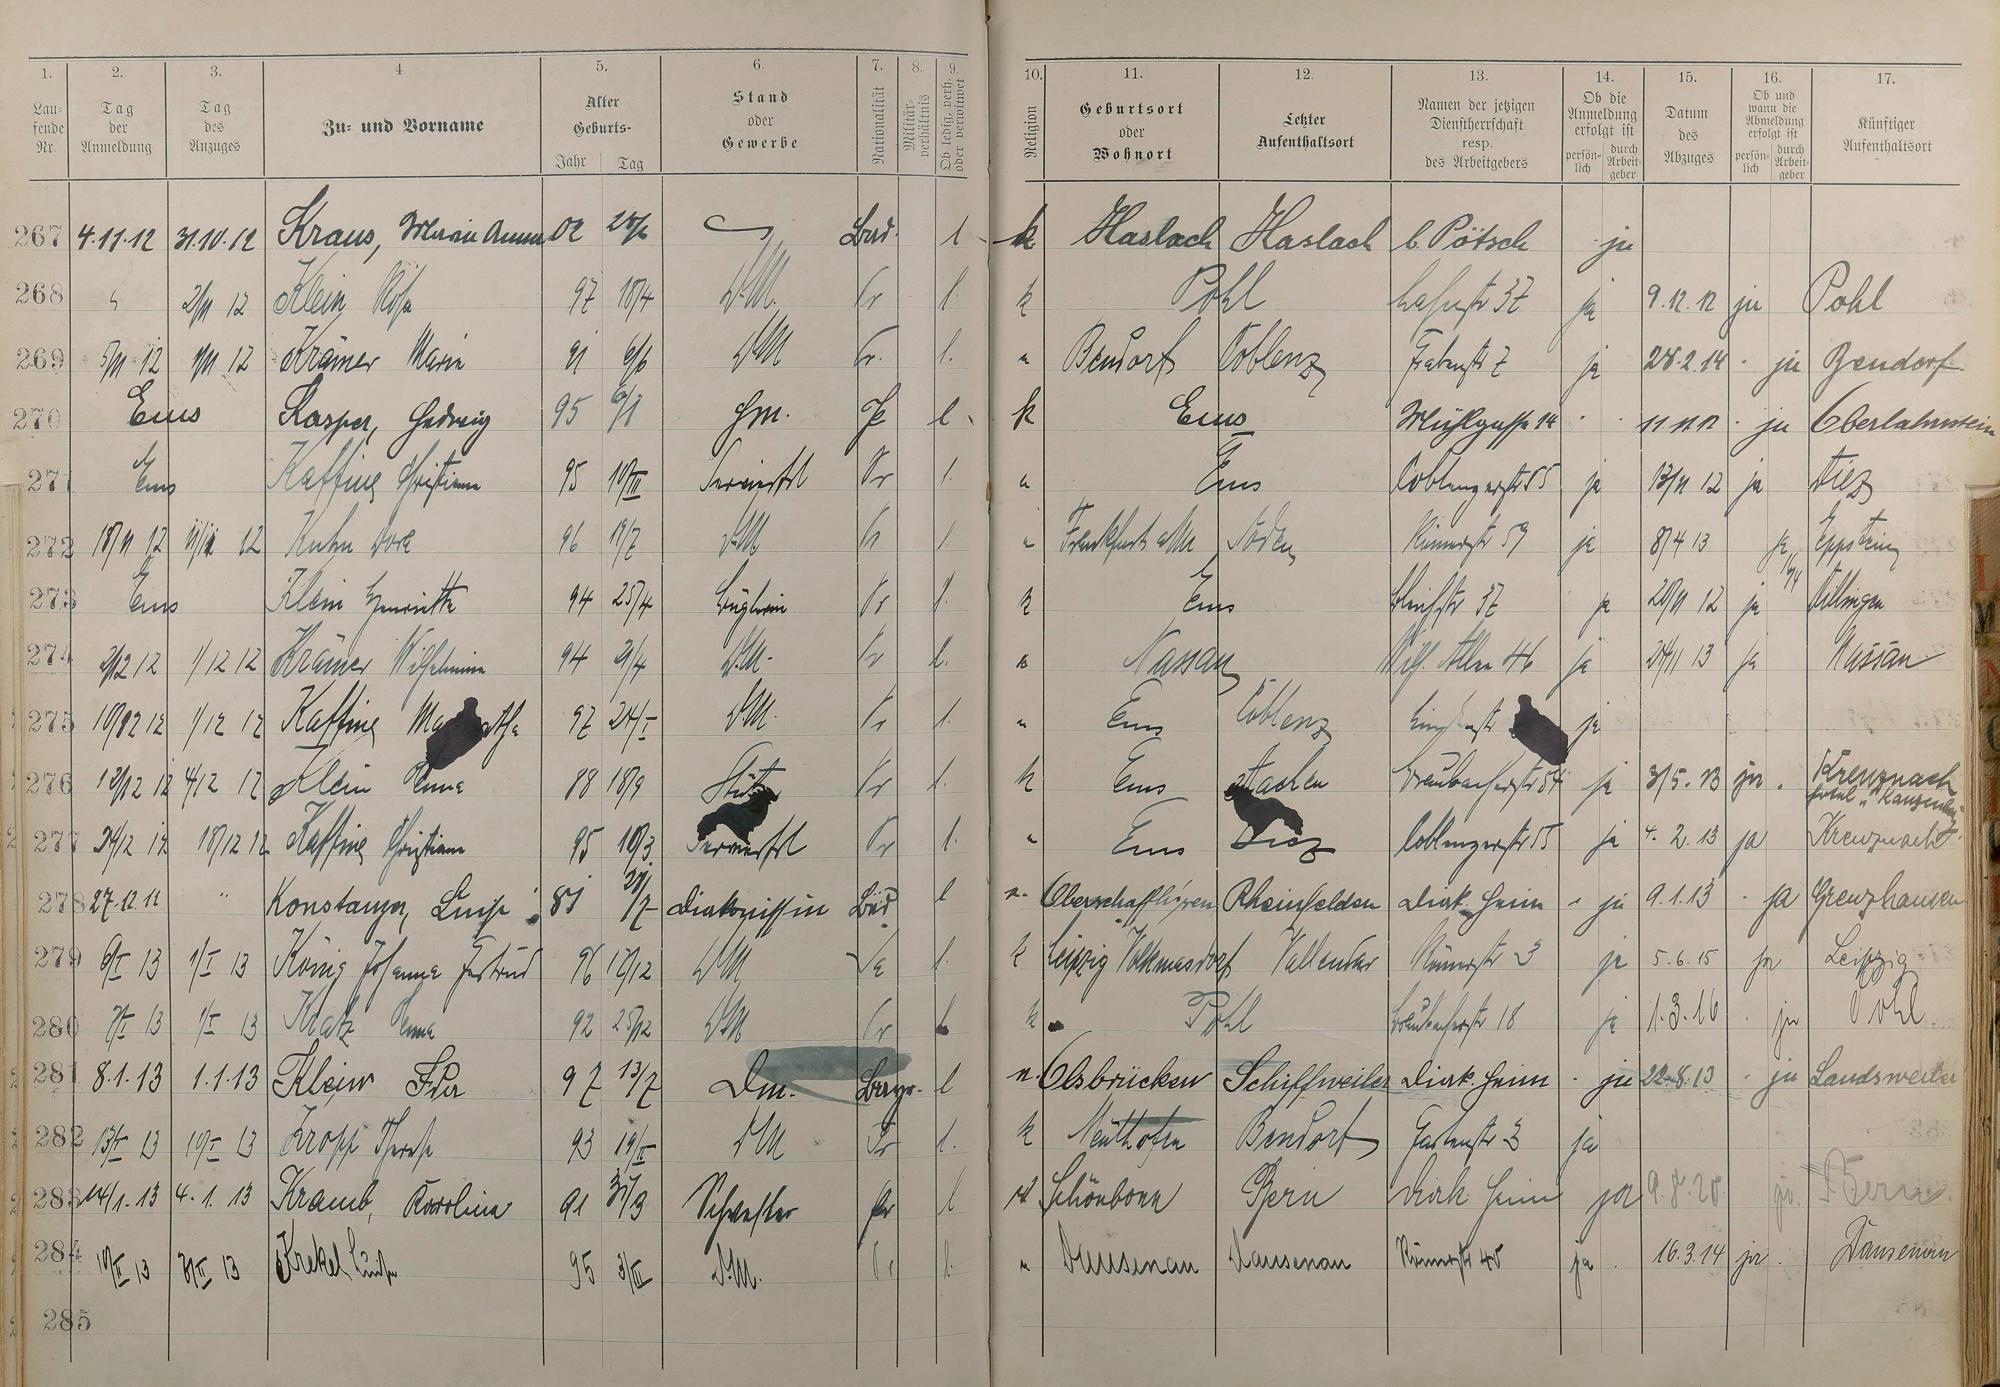 1. 2. 3. 4. 5. 6. 7. 8. 9. 10. 11. 12. 13. 14. 15. 16. 17.
Laufende Nr.
Tag der Anmeldung
Tag des Anzuges
Zu- und Vorname
Alter Geburts- Jahr Tag
Stand oder Gewerbe
Nationalität
Militärverhältnis
Ob ledig, verh. oder verwitwet
Religion
Geburtsort oder Wohnort
Letzter Aufenthaltsort
Namen der jetzigen Dienstherrschaft resp. des Arbeitgebers
Ob die Anmeldung erfolgt ist persönlich durch Arbeitgeber
Datum des Abzuges
Ob und wann die Abmeldung erfolgt ist persönlich durch Arbeitgeber
Künftiger Aufenthaltsort
267 4.11.12 31.10.12 Kraus, Maria Anna 02 Bad. l k Haslach Haslach b. Pötsch ja
268 2/11 12 Klein Rosa 97 18/4 D.M. Pr l. k Pohl 37 ja 9.12.12 ja Pohl
269 5/11 12 1/11 12 Krämer Maria 91 6/6 DM Pr. l. " Bendorf Coblenz Grabenstr 7 ja 28.2.14 ja Bendorf
270 Ems Kasper, Hedwig 95 6/1 Hm. Pr l k Ems Mühlgasse 14 11.12.12 ja Oberlahnstein
271 Ems Kaffine Christiane 95 10/III Servierfrl Pr l. " Ems Coblenzerstr 55 ja 13/11 12 ja Diez
272 18/11 12 Kuhn Dora 96 19/7 DM Pr l " Frankfurt a/M Soden Römerstr 59 ja 8/4 13 ja Eppstein
273 Ems Klein Henriette 94 25/4 Büglerin Pr l. k Ems 37 ja 20/11 12 ja Villingen
274 3/12 12 1/12 12 Krämer Wilhelmine 94 2/4 D.M. Pr l. " Nassau Wilh. Allee 46 ja 13 ja Nassau
275 10/12 12 1/12 12 Kaffine 97 24/I DM. Pr l. " Ems Coblenz ja
276 12/12 12 4/12 12 Klein Anna 88 18/9 Stütze Pr l. k Ems Aachen Braubacherstr 54 ja 3/5. 13 ja Kreuznach
Hotel
277 24/12 12 18/12 12 Kaffine Christiane 95 10/3. Servierfrl Pr l. " Ems Diez Coblenzerstr 55 ja 4. 2. 13 ja Kreuznach
278 27.12.11 " Konstanzer, Luise 81 Diakonissin Bad l Oberschaffhausen Rheinfelden Diak. Heim ja 9.1.13 ja Grenzhausen
279 6/I 13 1/I 13 König Johanna Gertrud 96 12/12 DM Sa l. k Leipzig Volkmarsdorf Vallendar Römerstr 3 ja 5.6.15 ja Leipzig
280 7/I 13 1/I 13 Kratz Anna 92 25/12 DM Pr l k Pohl Braubacherstr 18 ja 1.3.16 ja Pohl
281 8.1.13 1.1.13 Klein Ida 97 13/7 Dm. Bayr. l Olsbrücken Schiffweiler Diak. Heim ja 22.8.13 ja Landsweiler
282 13/I 13 10/I 13 Kropp Therese 93 19/II DM Pr l. k Neuthofen Bendorf Gartenstr 3 ja
283 14/1.13 4.1.13 Kramb, Karolina 91 31/3 Schwester Pr l Schönborn Bern Diak Heim ja 9.8.20 ja. Bern
284 10/II 13 3/II 13 Krekel Luise 95 3/III D.M. Pr l. " Dausenau Dausenau Römerstr 45 ja 16.3.14 ja Dausenau
285